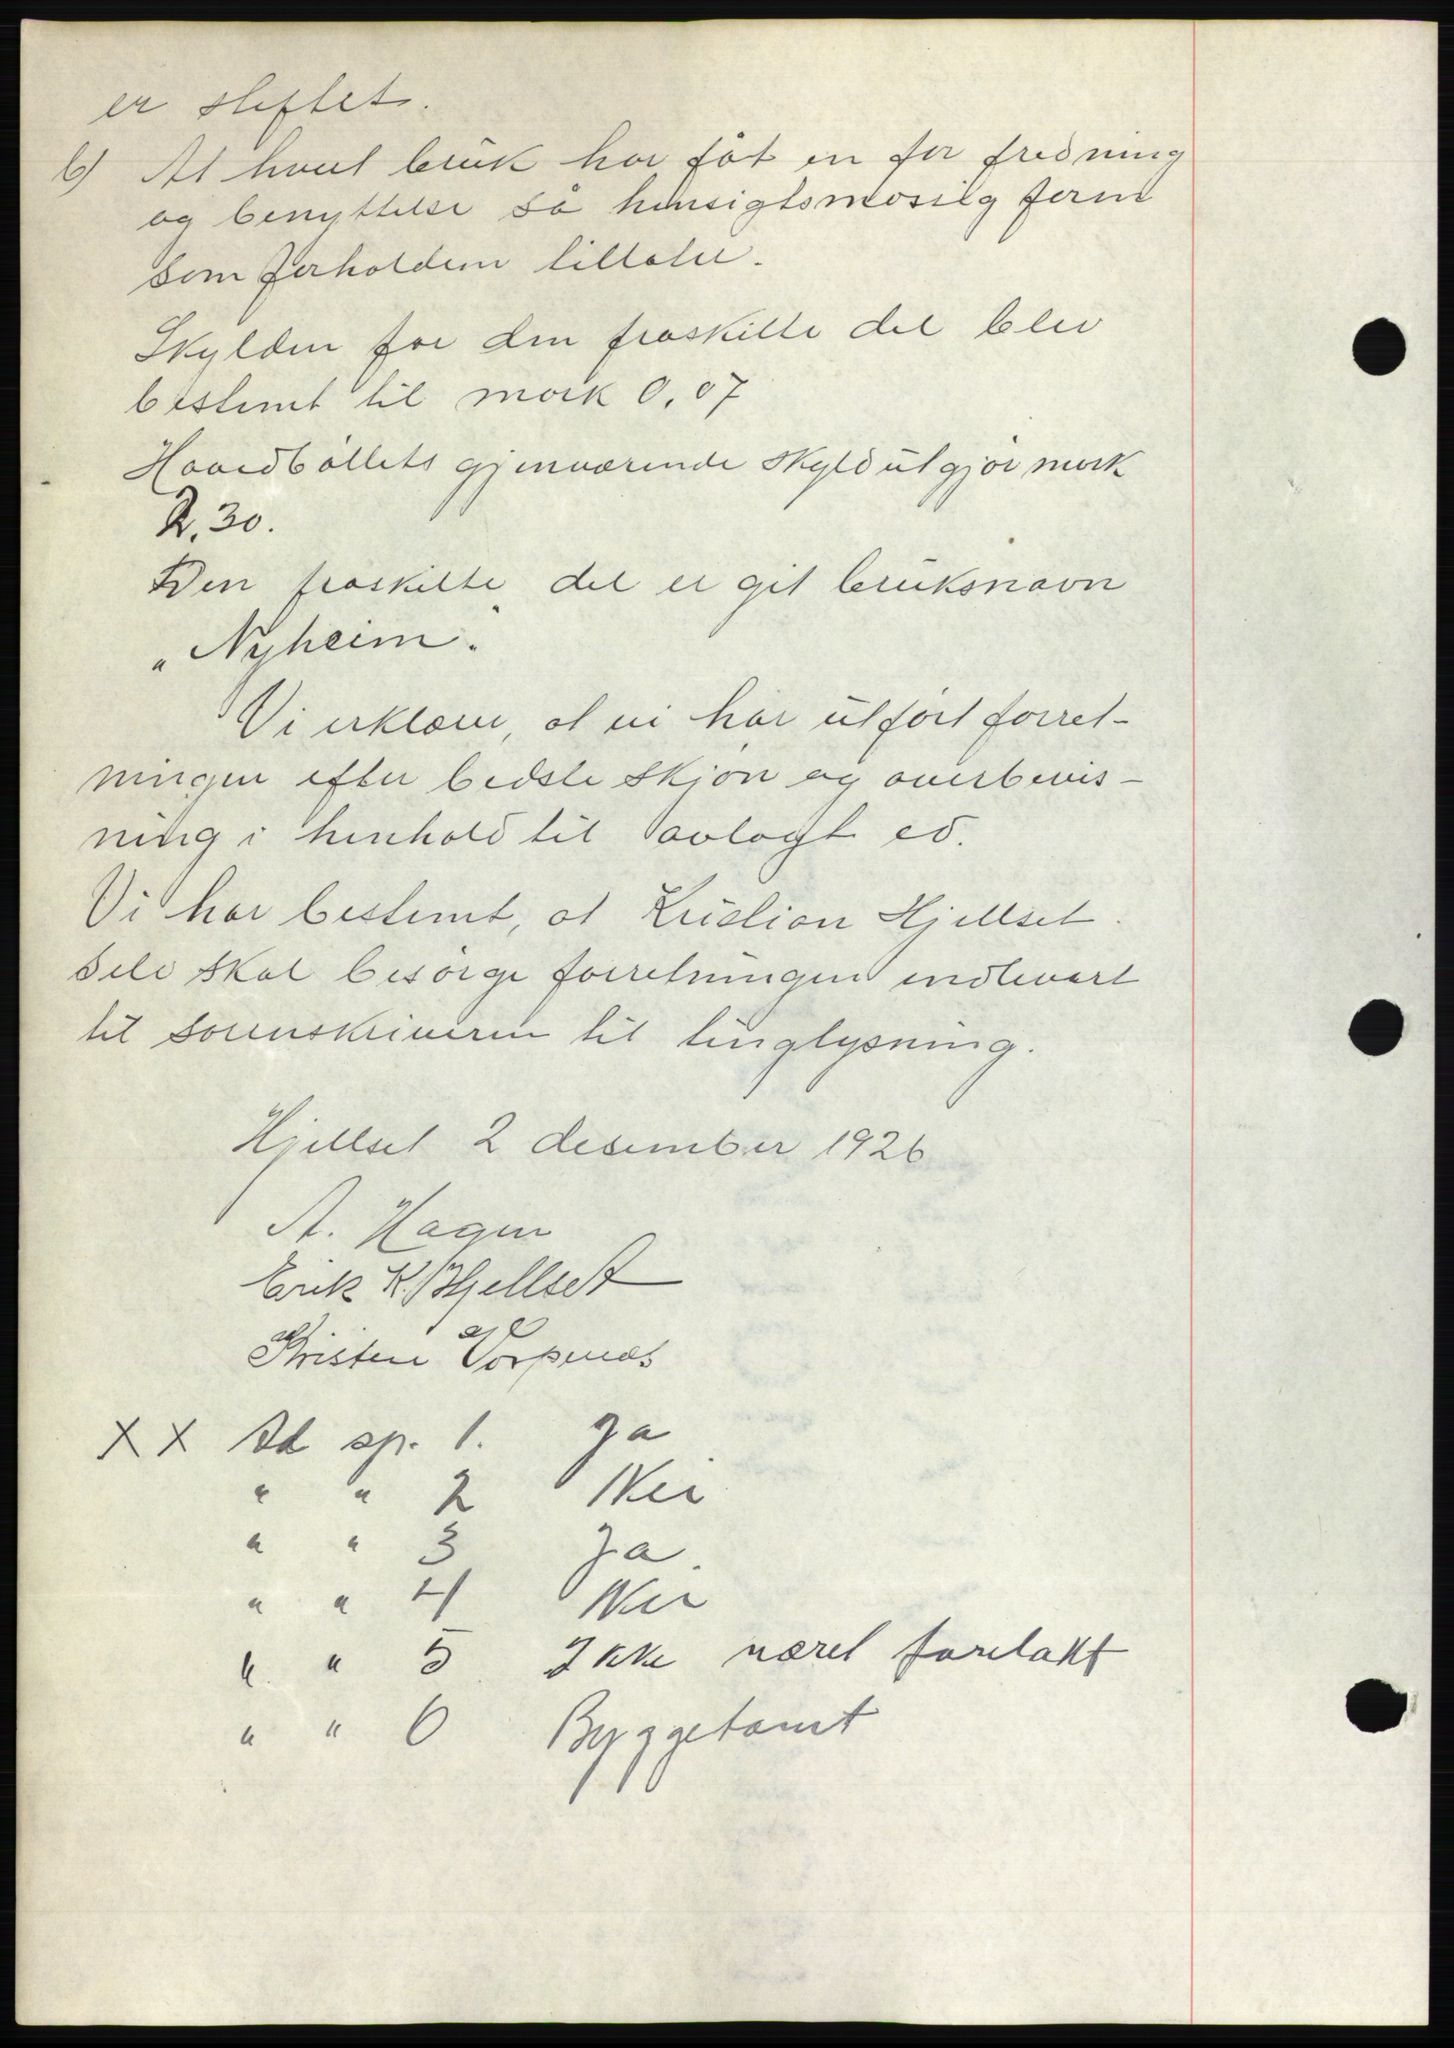 er skiftet.
b) At hvert bruk har fåt en for fredning
og benyttelse så hensigtsmæssig form
som forholdene tillater.
Skylden for den fraskilte del blev
bestemt til mark 0,07
Hovedbøllets gjenværende skyld utgjør mark
2,30.
Den fraskilte del er git bruksnavn
"Nyheim".
Vi erklærer, at vi har utført forret-
ningen efter bedste skjøn og overbevis-
ning i henhold til avlagt ed.
Vi har bestemt, at Kristian Hjellset
selv skal besørge forretningen indlevert
til sorenskriveren til tinglysning.
Hjellset 2 desember 1926
A. Hagen
Erik K. Hjellset
Kristen Vorpenes
X X Ad sp. 1. Ja
" " 2 Nei
" " 3 Ja.
" " 4 Nei
" " 5 Ikke været foretakt
" " 6 Byggetomt